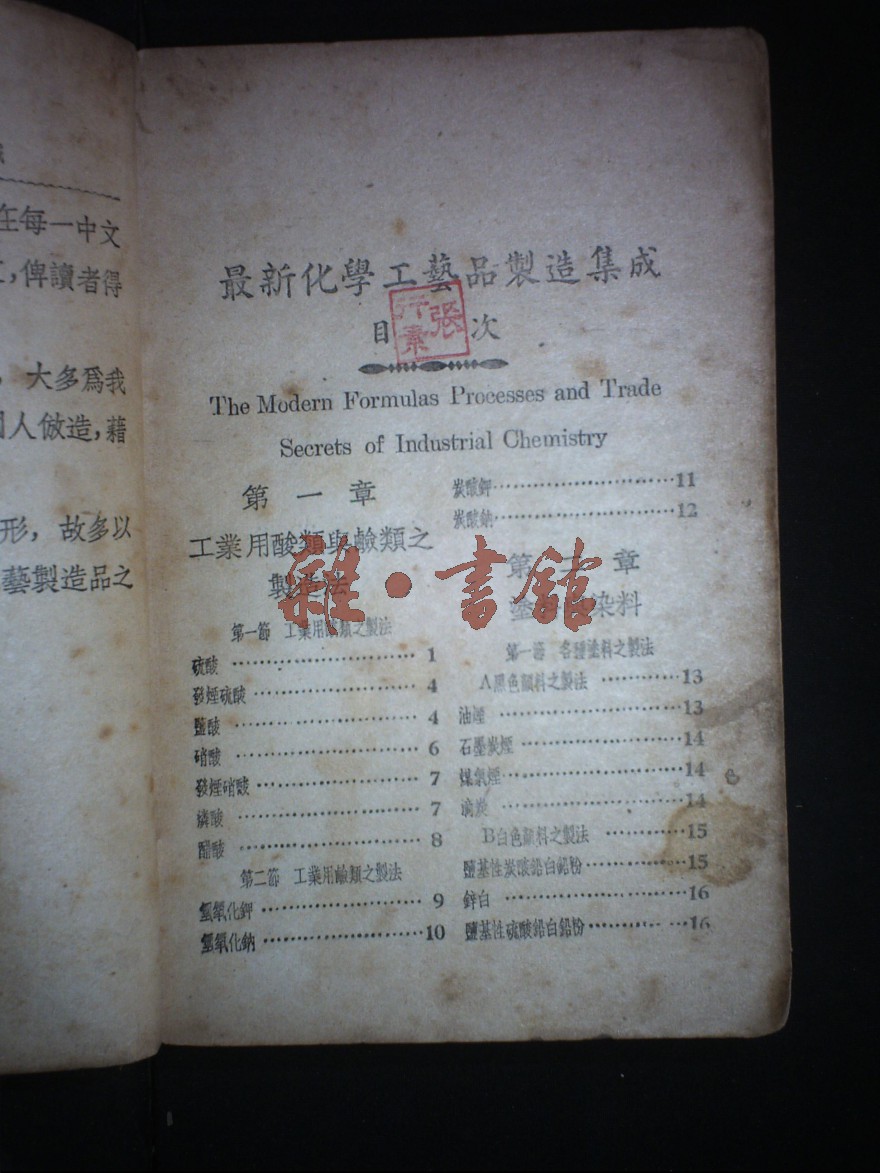 在每一中文
俾讀者得
大多爲我
人倣造，藉
形，故多以
藝製造品之
最新化學工藝品製造集成
目 次
張行素
The Modern Formulas Processes and Trade
Secrets of Industrial Chemistry
第一章
工業用酸類與鹼類之
製造法
第一節 工業用酸類之製法
硫酸 1
發煙硫酸 4
鹽酸 4
硝酸 6
發煙硝酸 7
燐酸 7
醋酸 8
第二節 工業用鹼類之製法
氫氧化鉀 9
氫氧化鈉 10
炭酸鉀 11
炭酸鈉 12
第二章
塗料與染料
第一節 各種塗料之製法
A黑色顏料之製法 13
油煙 13
石墨炭煙 14
煤氣煙 14
滴炭 14
B白色顏料之製法 15
鹽基性炭酸鉛白鉛粉 15
鋅白 16
鹽基性硫酸鉛白鉛粉 16
雜·書館